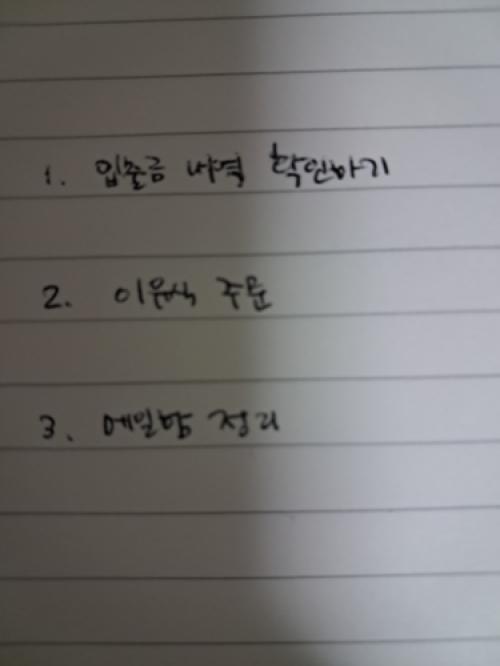 1. 입출금 내역 확인하기
2. 이유식 주문
3. 메일함 정리